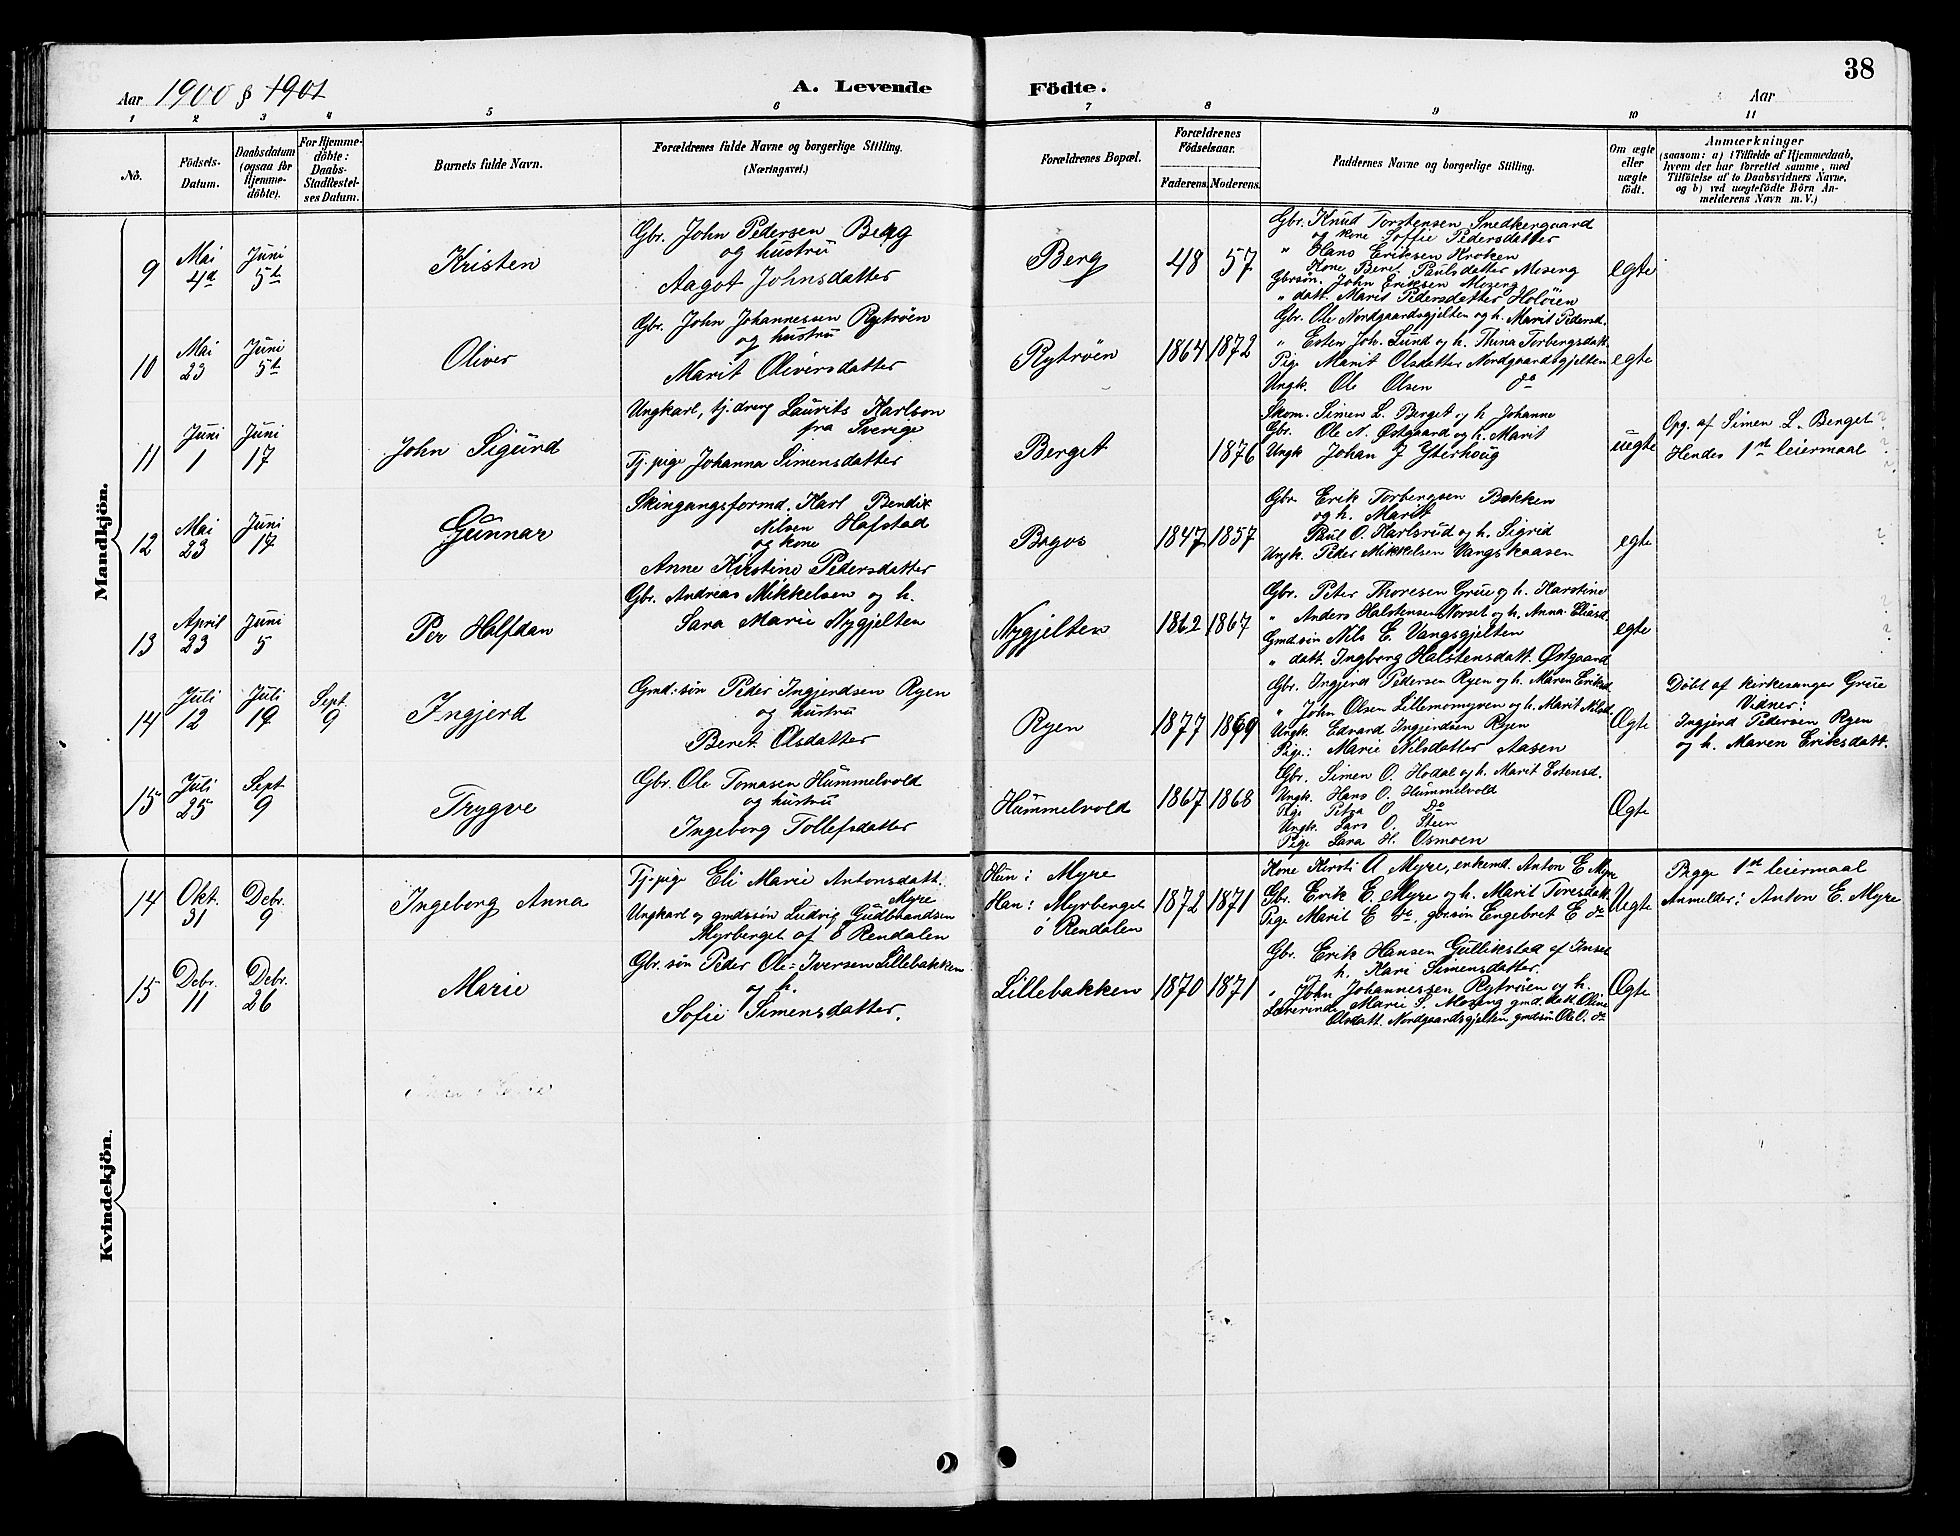 Aar 1900 & 1901
A. Levende Födte.
38
Aar
1 2 3 4 5 6 7 8 9 10 11
No.
Födsels-Datum.
Daabsdatum (ogsaa for Hjemme-döbte).
For Hjemme-döbte: Daabs-Stadfæstel-ses Datum.
Barnets fulde Navn.
Forældrenes fulde Navne og borgerlige Stilling. (Næringsvei.)
Forældrenes Bopæl.
Forældrenes Födselsaar.
Faderens. Moderens.
Faddernes Navne og borgerlige Stilling.
Om ægte eller uægte födt.
Anmærkninger
(saasom: a) i Tilfælde af Hjemmedaab, hvem der har forrettet samme, med Tilföielse af to Daabsvidners Navne, og b) ved uægtefödte Börn An-melderens Navn m. V.)
Mandkjön.
9
Mai 4de
Juni 5te
Kristen
Gbr. John Pedersen Berg
og hustru
Aagot Johnsdatter
Berg
48 57
Gbr. Knud Torstensen Snedkergaard
og kone Soffie Pedersdatter
" Hans Eriksen Kroken
Kone Beret Paulsdatter Moseng
Gbrsön. John Eriksen Moseng
" datt. Marit Pedersdatter Holöien
egte
10
Mai 23
Juni 5te
Oliver
Gbr. John Johannessen Rytröen
og hustru
Marit Oliversdatter
Rytröen
1864 1872
Gbr. Ole Nordgaardsgjelten og h. Marit Pedersd.
" Esten Joh. Lund og h. Thina Torbergsdatt.
Pige Marit Olsdatter Nordgaardsgjelten
Ungk. Ole Olsen do
egte
11
Juni 1
Juni 17
John Sigurd
Ungkarl, tj.dreng Laurits Karlson
fra Sverige
Tj.pige Johanna Simensdatter
Berget
1876
Skom. Simen L. Berget og h. Johanne
Gbr. Ole N. Østgaard og h. Marit
Ungk Johan J Yterhoug
uegte
Opg. af Simen L. Berget
Hendes 1st leiermaal
12
Mai 23
Juni 17
Gunnar
Skingangsformd. Karl Bendix
Nilsen Hafstad
og kone
Anne Kirstine Pedersdatter
Bogos
1847 1857
Gbr. Erik Torbergsen Bakken
og h. Marit
Paul O. Karlsrud og h. Sigrid
Ungk. Peder Mikkelsen Vangskaasen
egte
?
13
April 23
Juni 5
Per Halfdan
Gbr. Andreas Mikkelsen og h.
Sara Marie Nygjelten
Nygjelten
1862 1867
Gbr. Peter Thoresen Grue og h. Karstine
" Anders Halstensen Norset og h. Anna Eliasd.
Gmdsön Nils E. Vangsgjelten
" datt. Ingborg Halstensdatt. Østgaard
egte
?
14
Juli 12
Juli 19
Sept. 9
Ingjerd
Gmd.sön Peder Ingjerdsen Ryen
og hustru
Beret Olsdatter
Ryen
1877 1869
Gbr. Ingjerd Pedersen Ryen og h. Maren Eriksd.
" John Olsen Lillemomyren og h. Marit Nilsd.
Ungk. Edvard Ingjerdsen Ryen
Pige: Marie Nilsdatter Aasen
Ægte
Døbt af kirkesanger Grue
Vidner:
Ingjerd Pedersen Ryen
og h. Maren Eriksdatt.
15
Juli 25
Sept 9
Trygve
Gbr. Ole Tomasen Hummelvold
og hustru
Ingeborg Tollefsdatter
Hummelvold
1867 1868
Gbr. Simen O. Hodal og h. Marit Estensd.
Ungk. Hans O. Hummelvold
Pige Petra O do
Ungk. Lars O. Steen
Pige Sara H. Osmoen
Ægte
Kvindekjön.
14
Okt. 31
Debr. 9
Ingeborg Anna
Tj.pige Eli Marie Antonsdatt.
Myre
Ungkarl og gmdssön Ludvig Gudbrandsen
Myrberget af ö Rendalen
Hun: Myre
Han: Myrberget
ö Rendalen
1872 1871
Kone Kirsti A Myre, enkemd. Anton E Myre
Gbr. Erik E. Myre og h. Marit Toresdatt.
Pige Marit E do, gbrsön Engebret E do
Uegte
Begge 1st leiermaal
Anmelder: Anton E. Myre
15
Debr. 11
Debr. 26
Marie
Gbr. sön Peder Ole-Iversen Lillebakken
og h.
Sofie Simensdatter.
Lillebakken
1870 1871
Gbr. Erik Hansen Gullikstad af Insel
og h. Kari Simensdatter.
" John Johannessen Rytröien og h.
Lærerinde Marie S. Moseng gmd.datt. Oline
Olsdatt. Nordgaardsgjelten gmdsön Ole O. do
Ægte